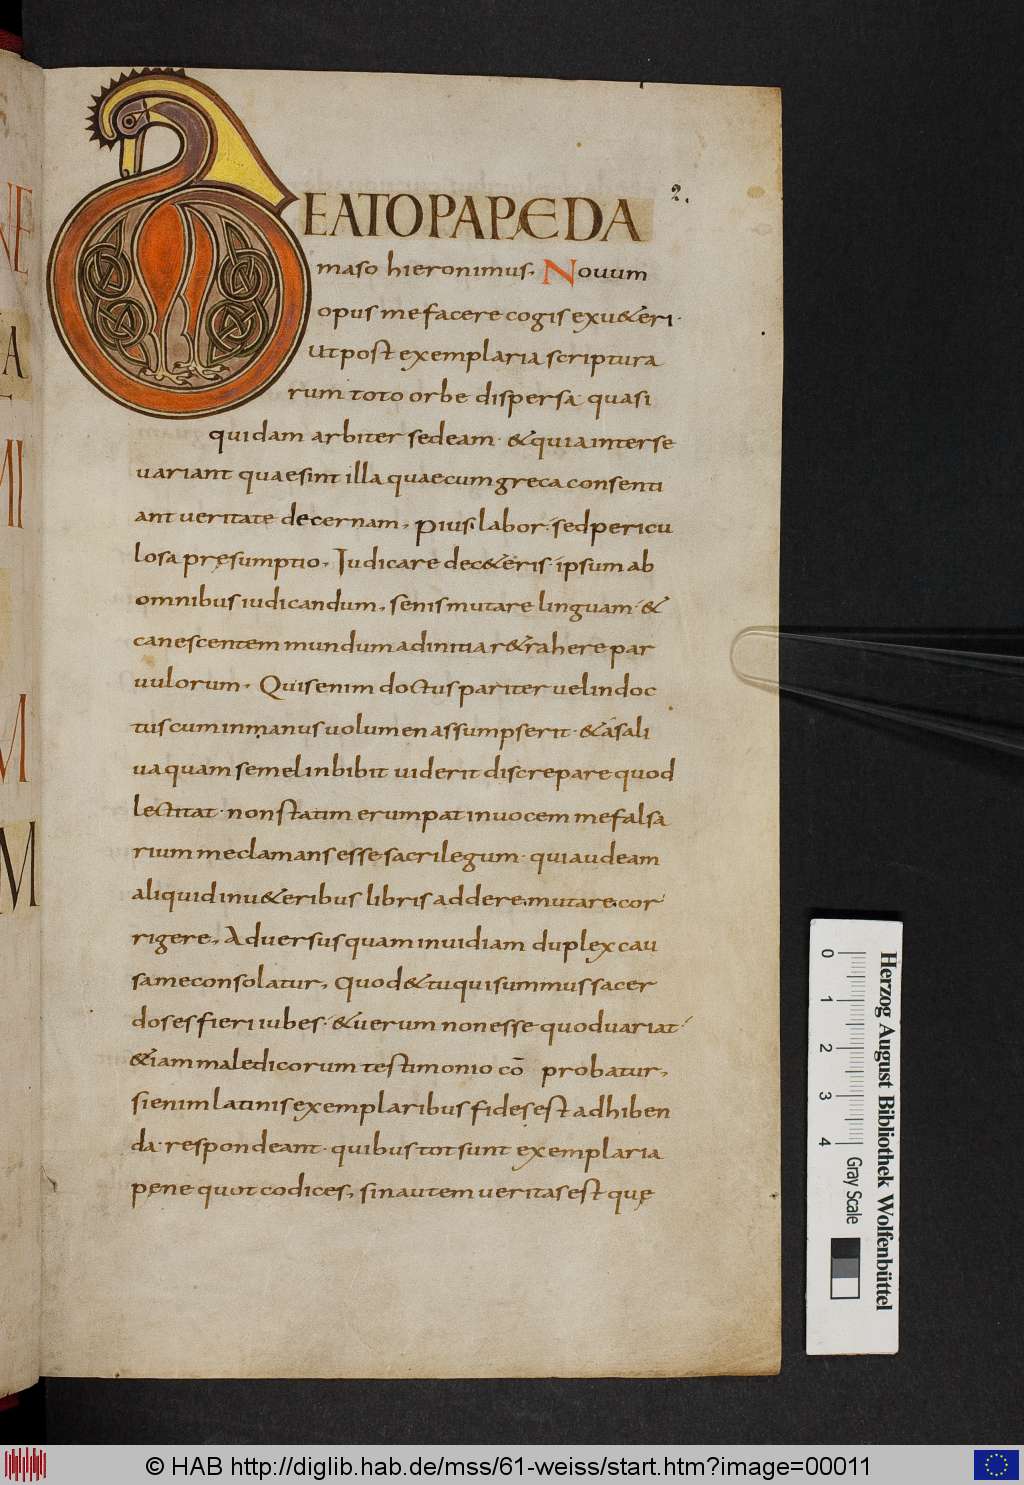 2.
BEATO PAPAE DA
maso hieronimus. Novum
opus me facere cogis ex ueteri.
Ut post exemplaria scriptura
rum toto orbe dispersa quasi
quidam arbiter sedeam. & quia inter se
variant quae sint illa quae cum greca consenti
ant veritate decernam. Pius labor. sed pericu
losa pręsumptio. Judicare de c&eris. ipsum ab
omnibus iudicandum. senis mutare linguam. &
canescentem mundum ad initia r&rahere par
vulorum. Quis enim doctus pariter uel indoc
tus cum in manus uolumen assumpserit. & a sali
ua quam semel inbibit uiderit discrepare quod
lectitat. non statim erumpat in uocem me falsa
rium me clamans esse sacrilegum. qui audeam
aliquid in u&eribus libris addere. mutare. cor
rigere. Adversus quam inuidiam duplex cau
sa me consolatur. Quod & tu qui summus sacer
dos es fieri iubes. & uerum non esse quod uariat.
&iam maledicorum testimonio cō probatur.
si enim latinis exemplaribus fides est adhiben
da. respondeant. quibus tot sunt exemplaria
pęne quot codices. sin autem ueritas est quę
NE
A
MI
M
M
0 1 2 3 4
Gray Scale
Herzog August Bibliothek Wolfenbüttel
© HAB http://diglib.hab.de/mss/61-weiss/start.htm?image=00011